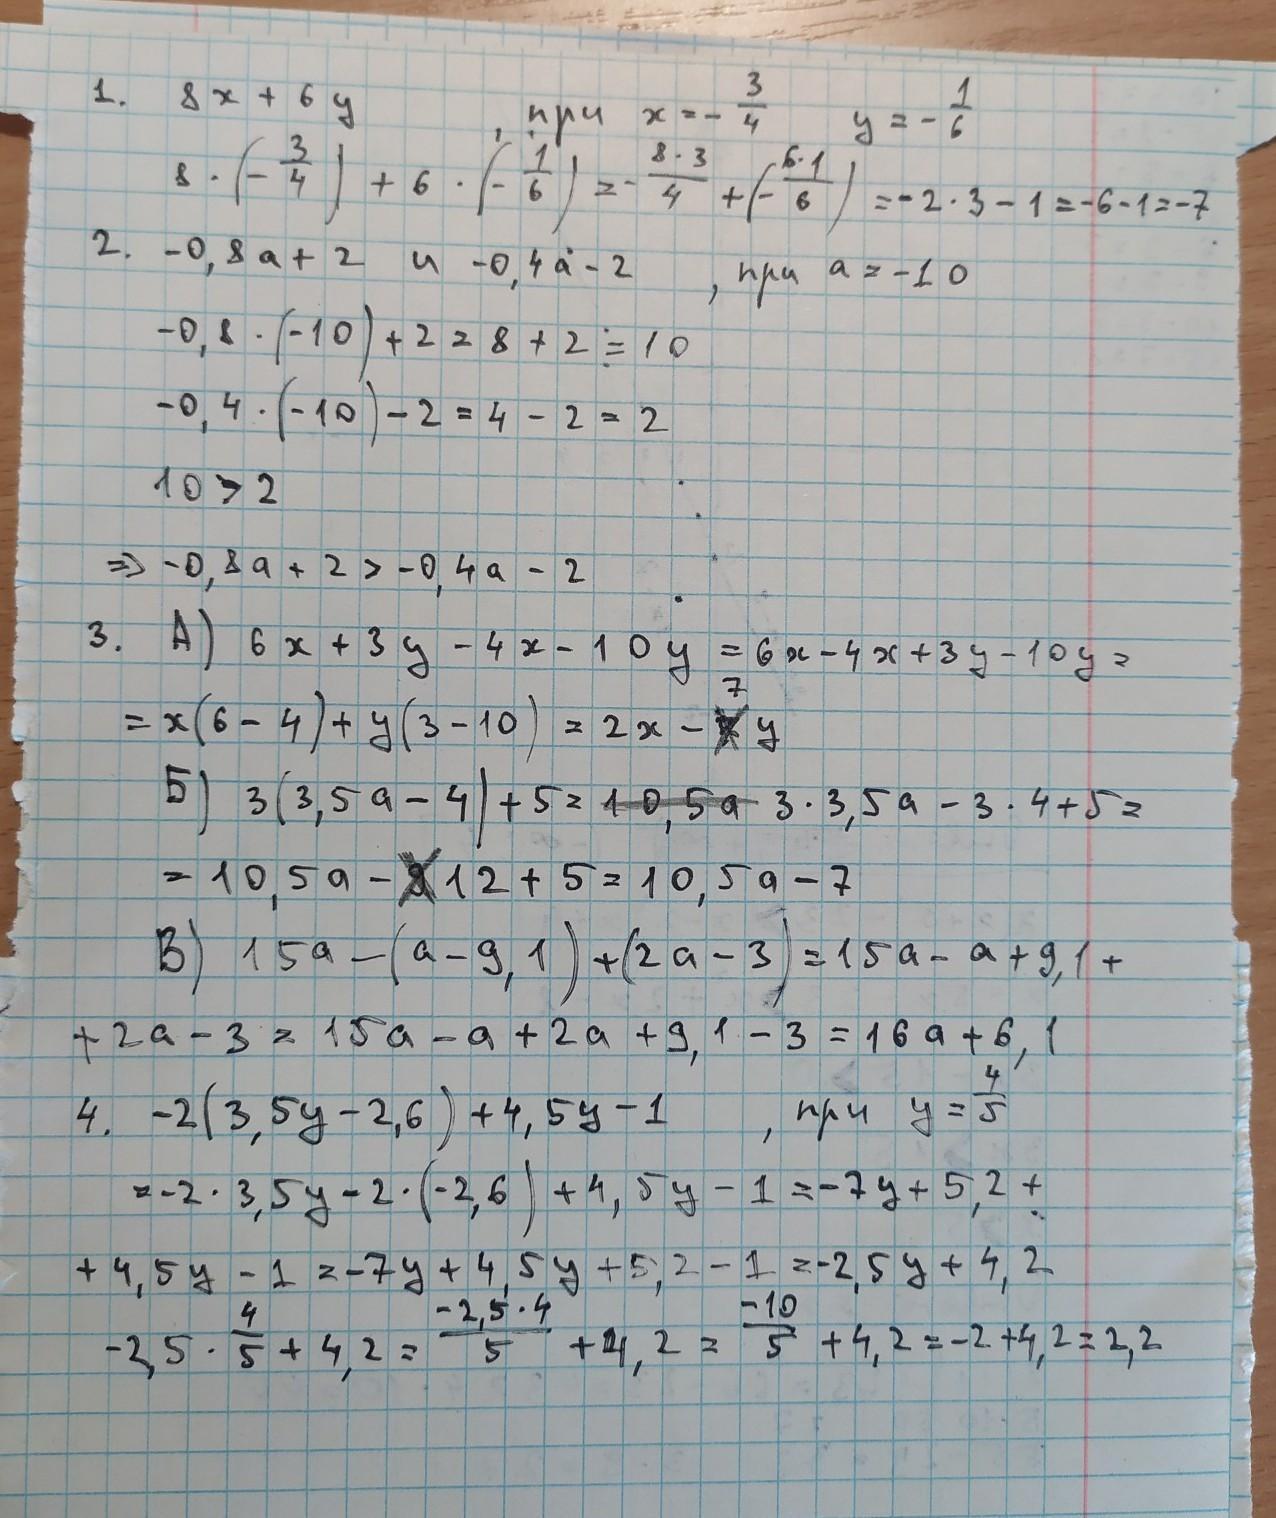 1. 8x + 6y , при x = -3/4 y = -1/6
8 · (-3/4) + 6 · (-1/6) = -8·3/4 + (-6·1/6) = -2·3-1=-6-1=-7
2. -0,8a + 2 и -0,4a - 2 , при a = -10
-0,8 · (-10) + 2 = 8 + 2 = 10
-0,4 · (-10) - 2 = 4 - 2 = 2
10 > 2
=> -0,8a + 2 > -0,4a - 2
3. А) 6x + 3y - 4x - 10y = 6x - 4x + 3y - 10y =
= x(6 - 4) + y(3 - 10) = 2x - 7y
Б) 3(3,5a - 4) + 5 = 10,5a 3·3,5a - 3·4+5=
= 10,5a - 12 + 5 = 10,5a - 7
В) 15a - (a - 9,1) + (2a - 3) = 15a - a + 9,1 +
+ 2a - 3 = 15a - a + 2a + 9,1 - 3 = 16a + 6,1
4. -2(3,5y - 2,6) + 4,5y - 1 , при y = 4/5
= -2·3,5y - 2·(-2,6) + 4,5y - 1 = -7y + 5,2 +
+ 4,5y - 1 = -7y + 4,5y + 5,2 - 1 = -2,5y + 4,2
-2,5 · 4/5 + 4,2 = -2,5·4/5 + 4,2 = -10/5 + 4,2 = -2+4,2=2,2